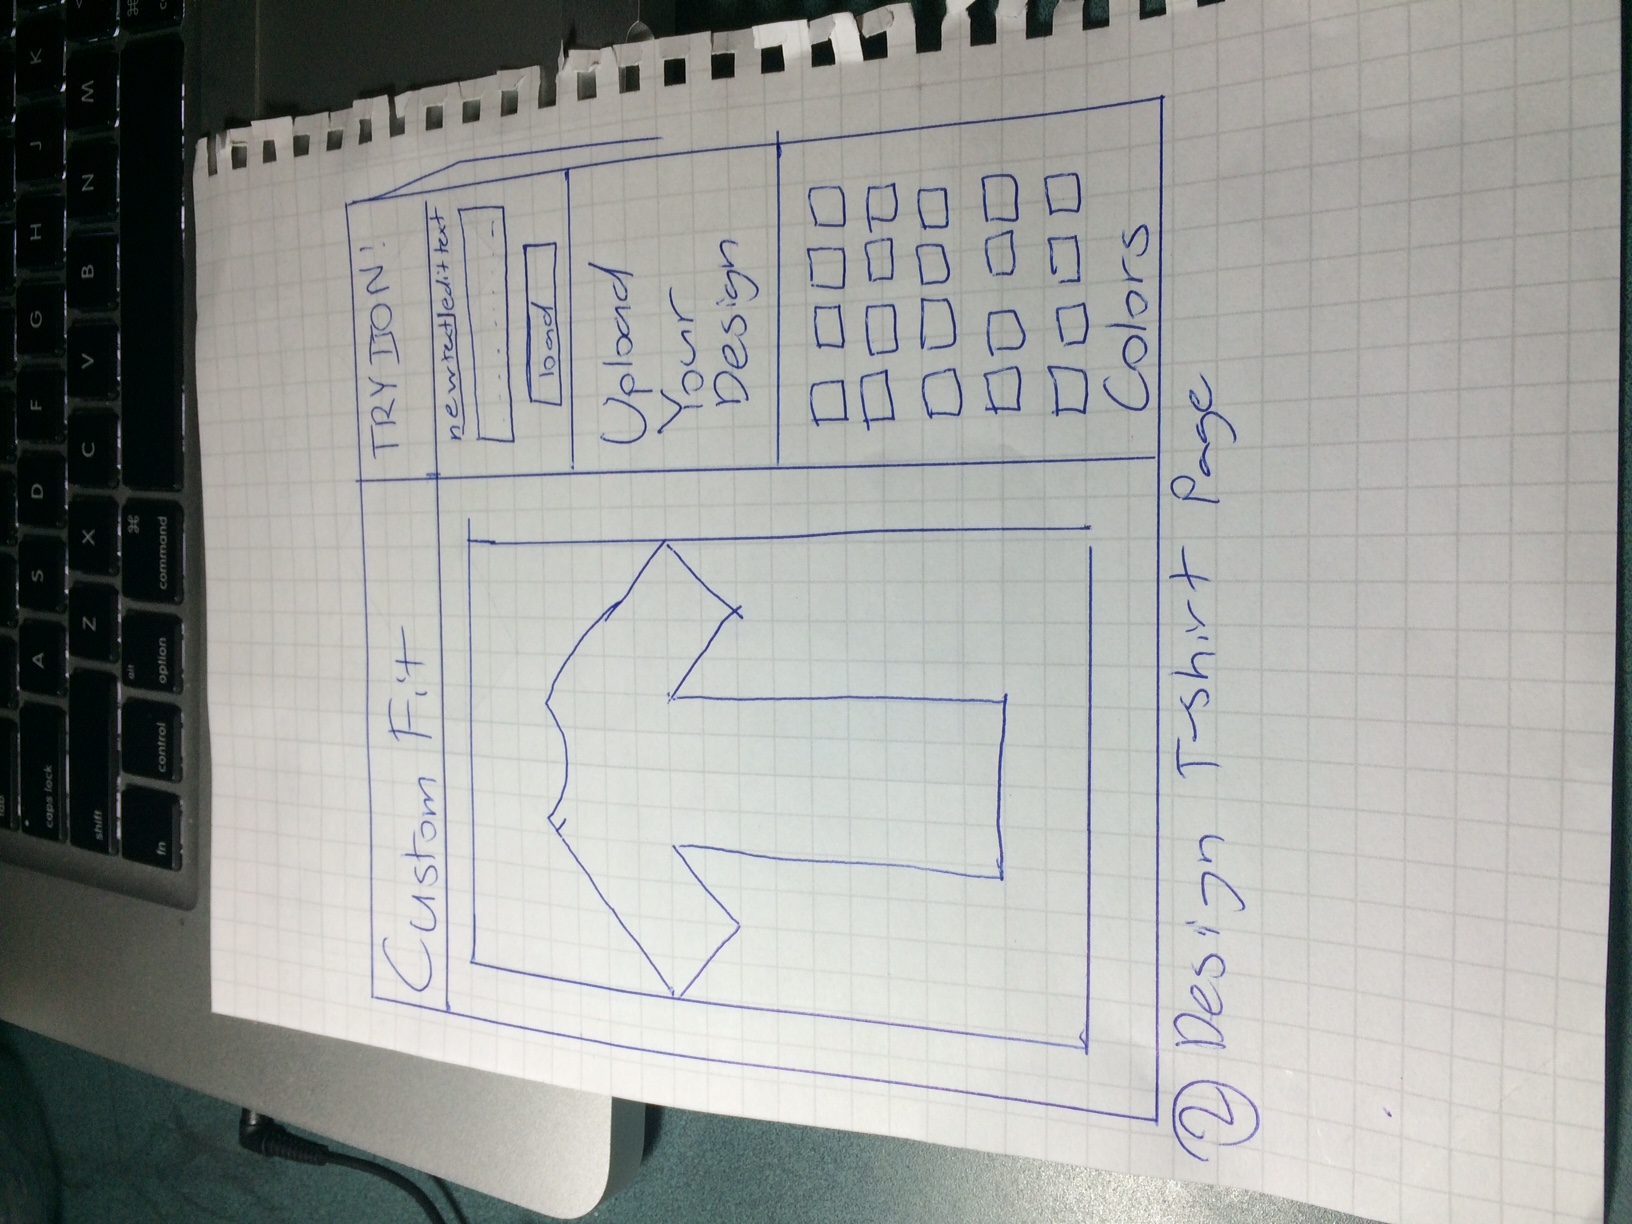 tab
caps lock A S D F G H J K
shift Z X C V B N M
fn control alt option ⌘ command
Custom Fit
TRY IT ON!
new text/edit text
load
Upload
Your
Design
Colors
2 Design T-shirt Page